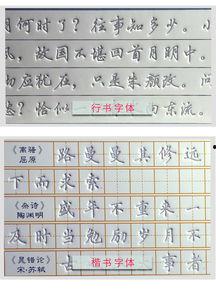 月何时了？往事知多少。小
风，故国不堪回首月明中。
砌应犹在，只是朱颜改。问
愁？恰似一 向东流。
行书字体
《离骚》 屈原 路曼曼其修远
下而求索
《杂诗》 陶渊明 盛年不重来一
及时当勉励岁月不
《晁错论》 宋·苏轼 古 事者
楷书字体